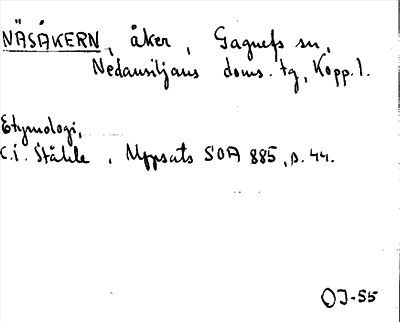 NÄSÅKERN, åker, Gagnefs sn,
Nedansiljans doms. tg, Kopp. l.
Etymologi,
C.I. Ståhle, Uppsats SOA 885, s. 44.
OJ-55